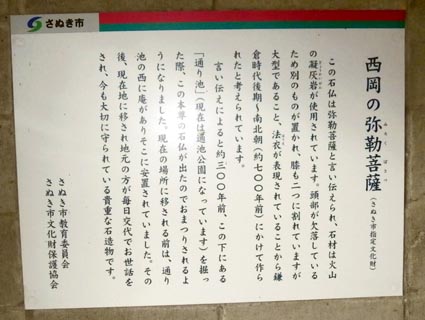 さぬき市
西岡の弥勒菩薩（さぬき市指定文化財）
みろくぼさつ
この石仏は弥勒菩薩と言い伝えられ、石材は火山
の凝灰岩が使用されています。頭部が欠落している
ため別のものが置かれ、膝も二つに割れていますが
大型であること、法衣が表現されていることから鎌
倉時代後期～南北朝（約七〇〇年前）にかけて作ら
れたと考えられています。
言い伝えによると約三〇〇年前、この下にある
「通り池」（現在は通池公園になっています）を掘っ
た際、この本尊の石仏が出たのでおまつりされるよ
うになりました。現在の場所に移される前は、通り
池の西に庵がありそこに安置されていました。その
後、現在地に移され地元の方が毎日交代でお世話を
され、今も大切に守られている貴重な石造物です。
さぬき市教育委員会
さぬき市文化財保護協会